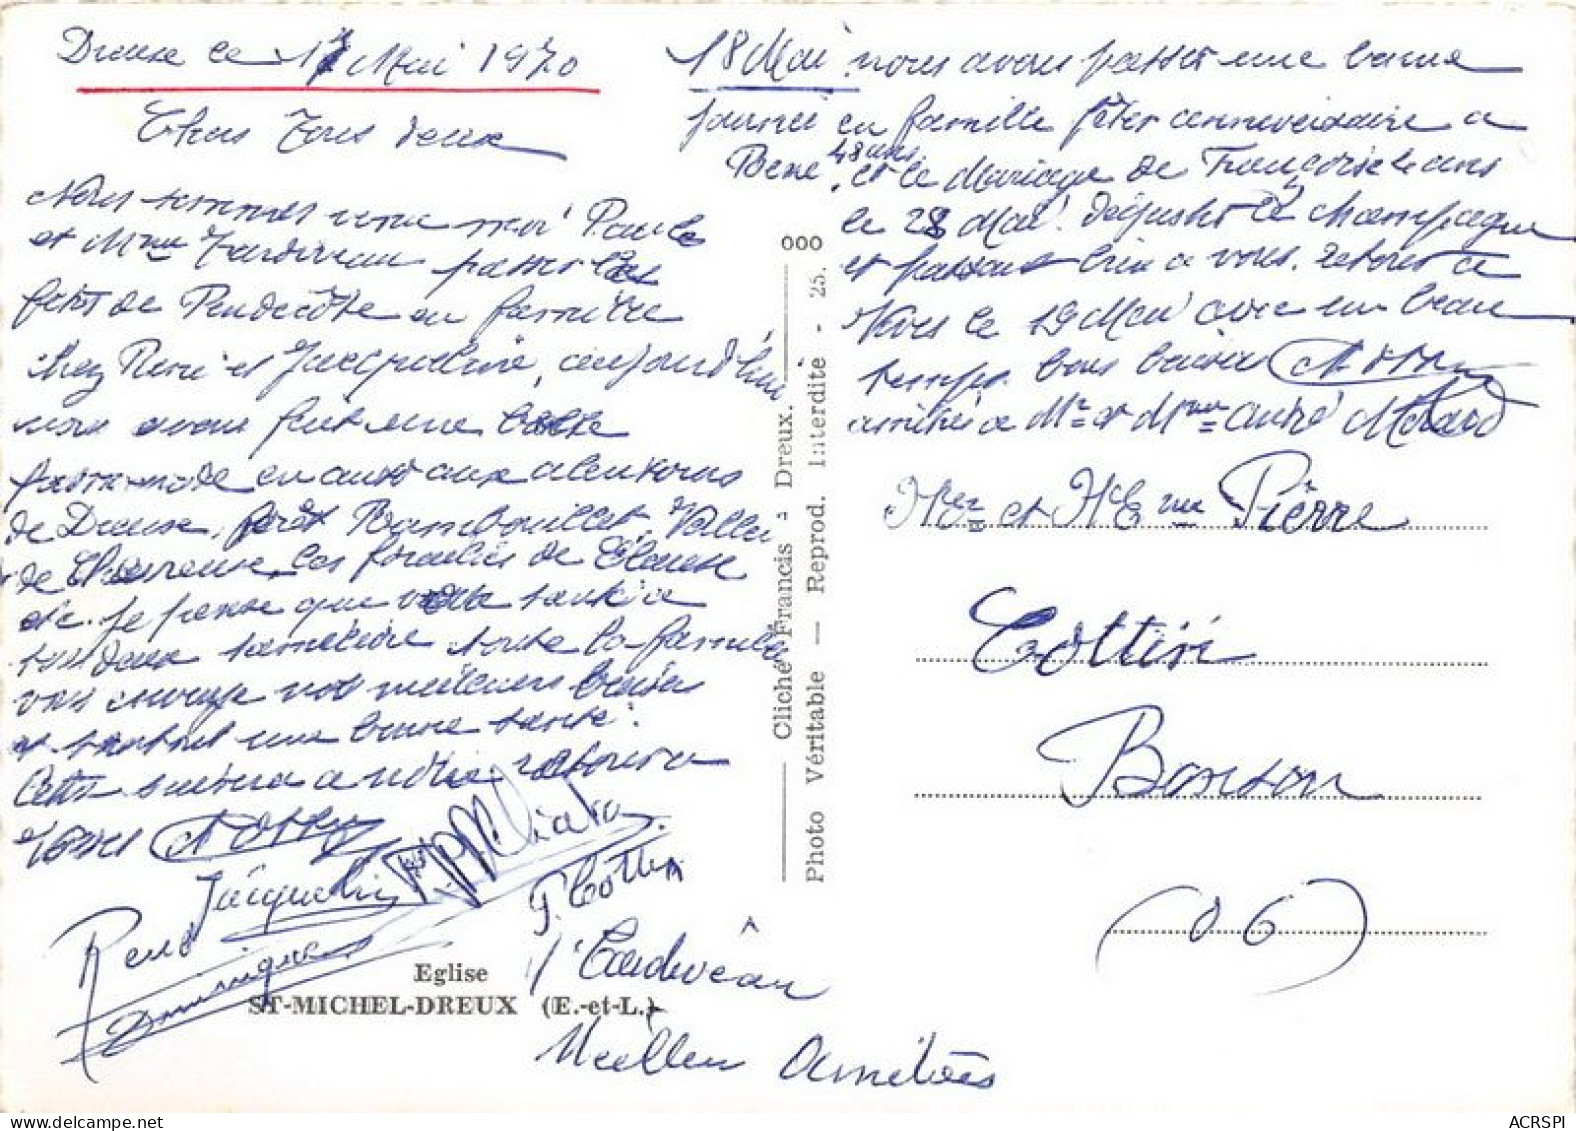 Dreux le 17 Mai 1970
Chers Tous deux
Nous sommes venu moi Paule
et Mme Tardiveau passer les
fetes de Pendecôte en famille
chez René et Jacqueline, aujourd'hui
nous avons fait une belle
promenade en auto aux alentours
de Dreux, forêt Rambouillet, Vallée
de Chevreuse, les
etc. je pense que votre santé a
tous deux s'améliore toute la famille
vous envoye nos meilleurs baisers
et surtout une bonne santé.
Cette suivra a notre retour a
Jacqueline
René P. Cottin
Dominique
Tardiveau
Meilleur Amitiées
Eglise
ST-MICHEL-DREUX (E.-et-L.)
Cliché Francis - Dreux. 000
Photo Véritable — Reprod. Interdite - 25.
18 Mai nous avons passer une bonne
journée en famille fêter anniversaire a
René 48 ans et le Mariage de Françoise
le 28 Mai. déguster le champagne
et pensons bien a vous. retour a
le 19 Mai avec un beau
temps. bons baisers
amitiés a Mr et Mme André
Mr et Mme Pierre
Cottin
Bonson
(06)
ACRSPI